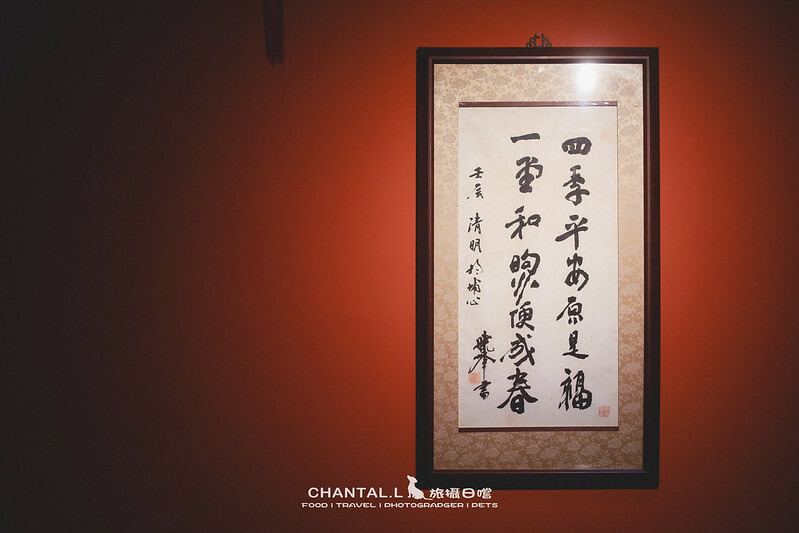 四季平安原是福
一堂和煦便成春
壬辰 清明 於埔心
曉峯 書
CHANTAL.L 旅攝日嚐
FOOD | TRAVEL | PHOTOGRAPGER | PETS